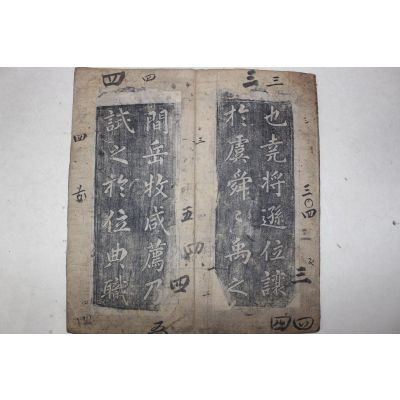 三
三
三〇四
三
四 四
也堯將遜位讓
於虞舜〻禹之
三
五
四
四
五
間岳牧咸薦乃
試之於位典職
四
四
四